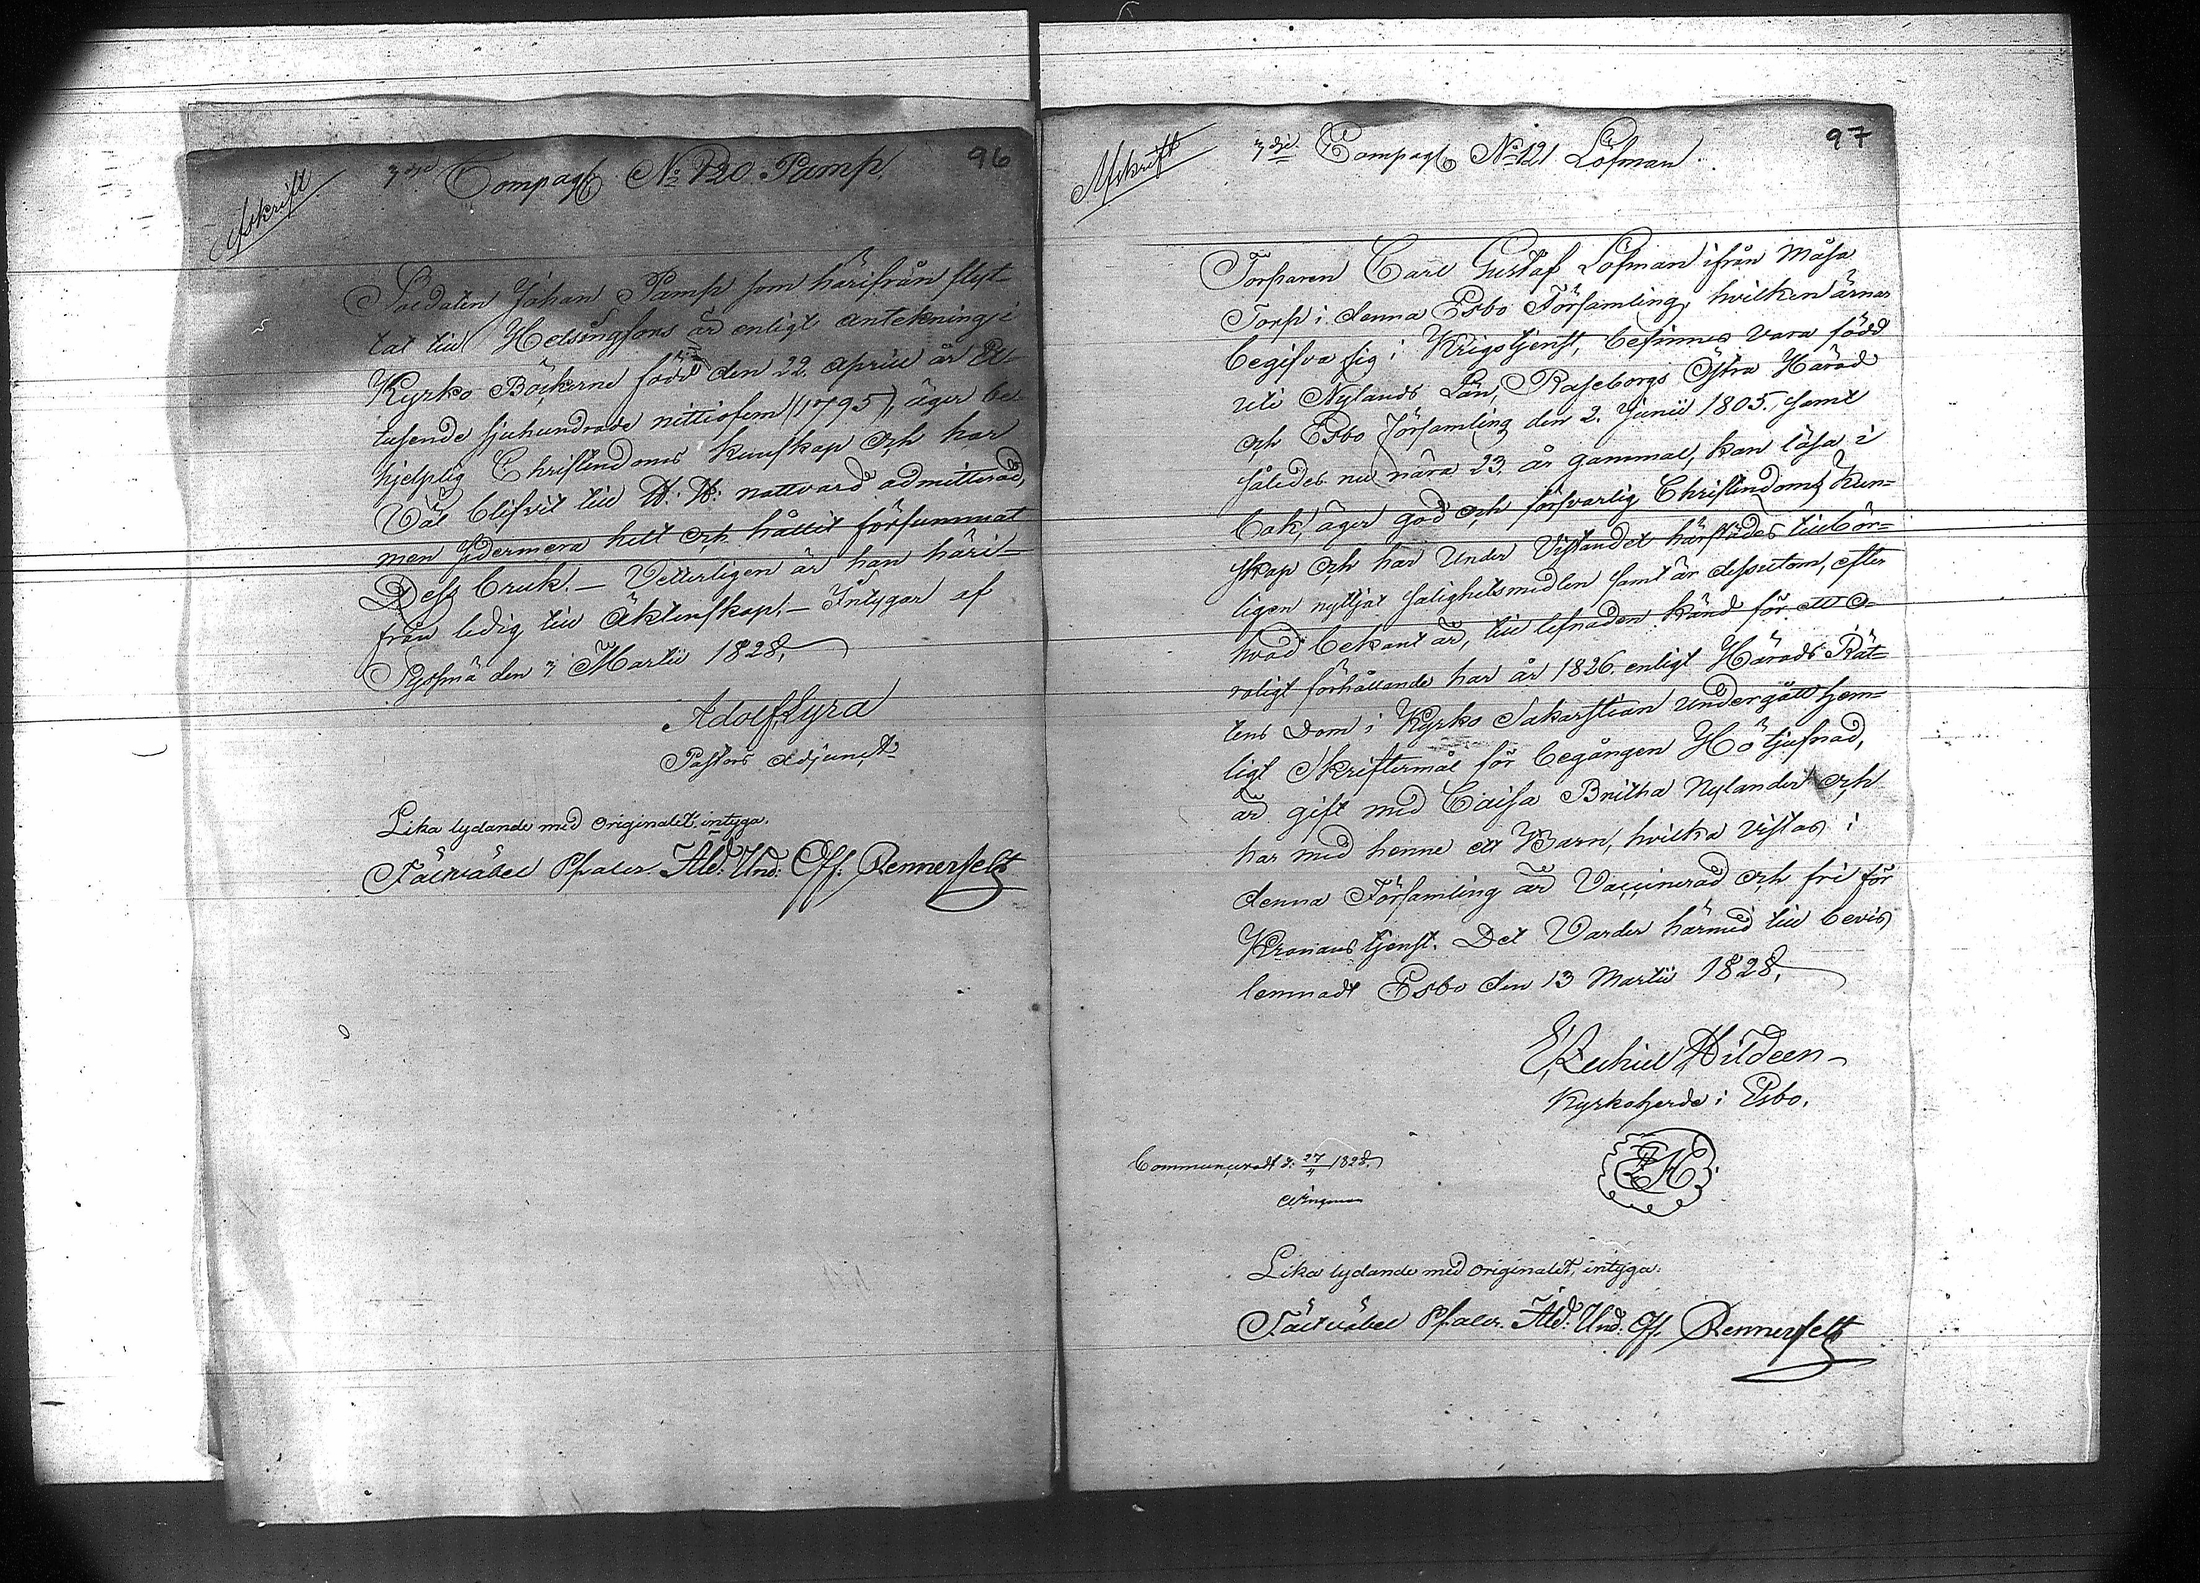 96
Afskrift
3dje Compagt No 120 Pamp.
Soldaten Johan Pamp som härifrån flyt-
tat till Helsingfors är enligt anteckning i
Kyrko Böckerne född den 22. April år Et-
tusende sjuhundrade nittiofem (1795), äger be-
hjelplig Christendoms kunskap och har
Väl blifvit till H: H: nattvard admitterad,
men ydermera helt och hållit försummat
Dess bruk. — Vetterligen är han häri-
från ledig till Äktenskap. — Intygar af
Sysmä den 3 Martii 1828.
Adolf Lyra
Pastors Adjunct
Lika lydande med Originalet, intyga.
Fältväbel Pfaler. Äld: Und: Off: Rennerfelt
97
Afskrift
3dje Compagt No 121 Löfman
Torparen Carl Gustaf Löfman ifrån Måsa
Torp i denna Esbo Församling, hvilken ärnar
begifva sig i Krigstjenst, befinnes vara född
uti Nylands Län, Raseborgs Östra Härad
och Esbo Församling den 2. Junii 1805. samt
således nu nära 23. år gammal, kan läsa i
bok, äger god och försvarlig Christendoms Kun-
skap och har Under Vistandet härstädes tillbör-
ligen nyttjat salighetsmedlen samt är dessutom, efter
hvad bekant är, till lefnaden känd för ett o-
roligt förhållande har år 1826. enligt Härads Rät-
tens Dom i Kyrko Sakarstian undergått hem-
ligt Skriftermål för begången Hö tjufnad,
är gift med Caisa Britha Nylander och
har med henne ett Barn, hvilka vistas i
denna Församling är Vaccinerad och fri för
Kronans tjenst. Det Varder härmed till bevis
lemnadt Esbo den 13 Martii 1828.
Ezechiel Hildeen
Kyrkoherde i Esbo.
EH
Communiceradt d: 27/4 1828.
Lika lydande med Originalet, intyga:
Fältväbel Pfaler. Äld: Und: Off. Rennerfelt